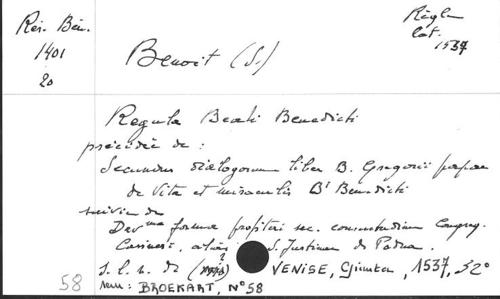 Rés. Bén.
1401
20
Règle
lat.
1537
Benoit (S.)
Regula Beati Benedicti
précédée de :
Secundus dialogorum liber B. Gregorii papae
de Vita et miraculis Bi Benedicti
suivie de
forma profitiri sec. consuetudinem Congreg.
S. Justinae de Padua.
s. l. n. d. VENISE, Giunta, 1537, 32°
58
BROEKART, N°58